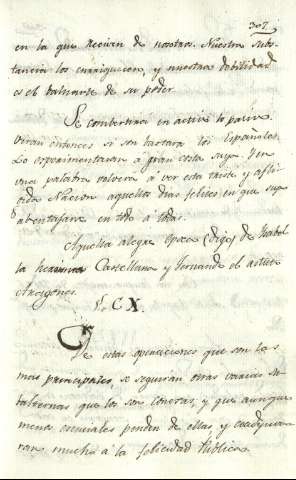 307
en la que reciven de nosotros. Nuestra subs-
tancia los enriquece, y nuestra debilidad
es el baluarte de su poder.
Se combertirá en activo lo pasivo.
Verán entonces si son bastará los Españoles.
Lo experimentarán á gran costa suya. Y en
una palabra volverá á ver esta triste y afli-
gida Nacion aquellos dias felices en que su-
po abentajarse en todo á todas.
Aquella alegre Epoca (digo) de Isabel
la Castellana y Fernando el astuto
Aragones.
§. CX.
De estas operaciones que son las
mas principales, se seguirán otras varias su-
balternas que les son conexas; y que aunque
menos esenciales penden de ellas, y coadyuva-
ran mucho á la felicidad Publica.